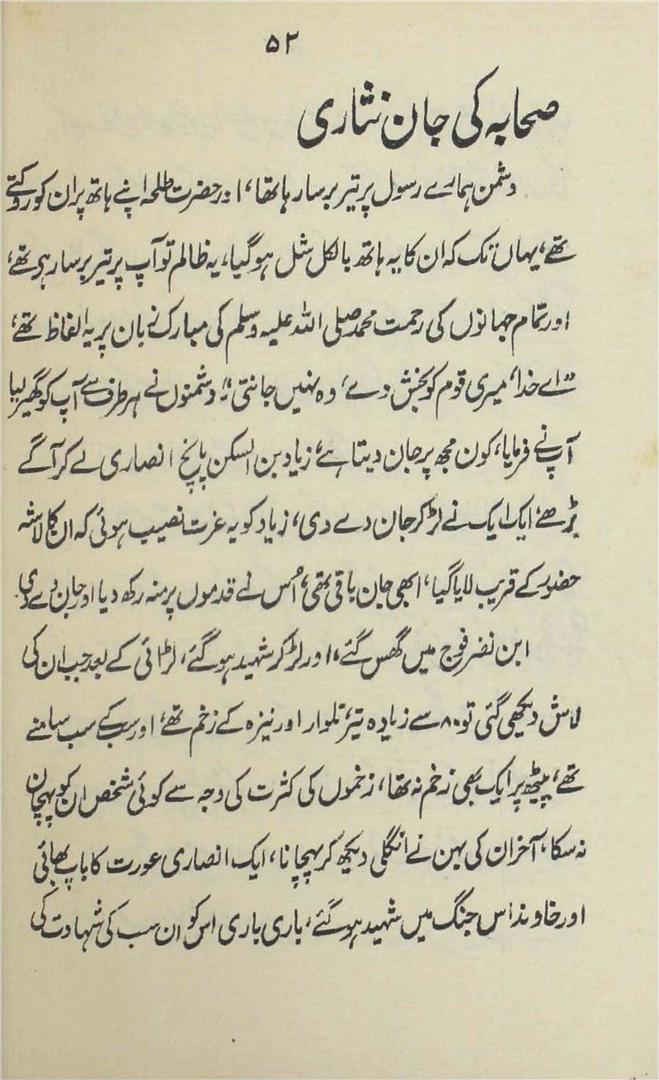 ۵۲
صحابہ کی جان نثاری
دشمن ہمارے رسول پر تیر برسا رہا تھا، اور حضرت طلحہ اپنے ہاتھ پر ان کو روکتے
تھے، یہاں تک کہ ان کا یہ ہاتھ بالکل شل ہو گیا، یہ ظالم تو آپ پر تیر برسا رہے تھے،
اور تمام جہانوں کی رحمت محمد صلی اللہ علیہ وسلم کی مبارک زبان پر یہ الفاظ تھے،
"اے خدا، میری قوم کو بخش دے، وہ نہیں جانتی"، دشمنوں نے ہر طرف سے آپ کو گھیر لیا
آپ نے فرمایا، کون مجھ پر جان دیتا ہے، زیاد بن السکن پانچ انصاری لے کر آگے
بڑھے ایک ایک نے لڑ کر جان دے دی، زیاد کو یہ عزت نصیب ہوئی کہ ان کا لاشہ
حضور کے قریب لایا گیا، ابھی جان باقی تھی، اُس نے قدموں پر منہ رکھ دیا اور جان دے دی.
ابن نضر فوج میں گھس گئے، اور لڑ کر شہید ہو گئے، لڑائی کے بعد جب ان کی
لاش دیکھی گئی تو ۸۰ سے زیادہ تیر، تلوار اور نیزہ کے زخم تھے، اور سب کے سب سامنے
تھے، پیٹھ پر ایک بھی زخم نہ تھا، زخموں کی کثرت کی وجہ سے کوئی شخص ان کو پہچان
نہ سکا، آخر ان کی بہن نے انگلی دیکھ کر پہچانا، ایک انصاری عورت کا باپ بھائی
اور خاوند اس جنگ میں شہید ہو گئے، باری باری اس کو ان سب کی شہادت کی